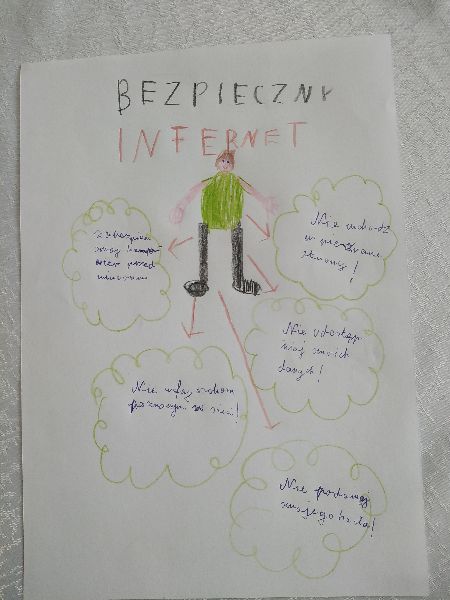 BEZPIECZNY
INTERNET
Zabezpiecz
swój
przed
wirusami
Nie wchodź
w nieznane
strony!
Nie udostęp
niaj swoich
danych!
Nie ufaj osobom
poznanym w sieci!
Nie podawaj
swojego hasła!